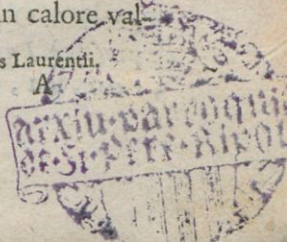 n calore val-
s Laurentii.
A
arxiu-parroqui
de St Pere-Ripol